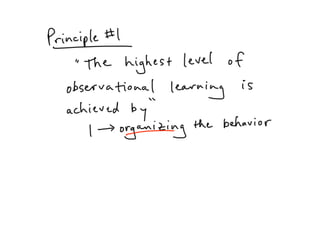 Principle #1
"The highest level of
observational learning is
achieved by"
1 → organizing the behavior